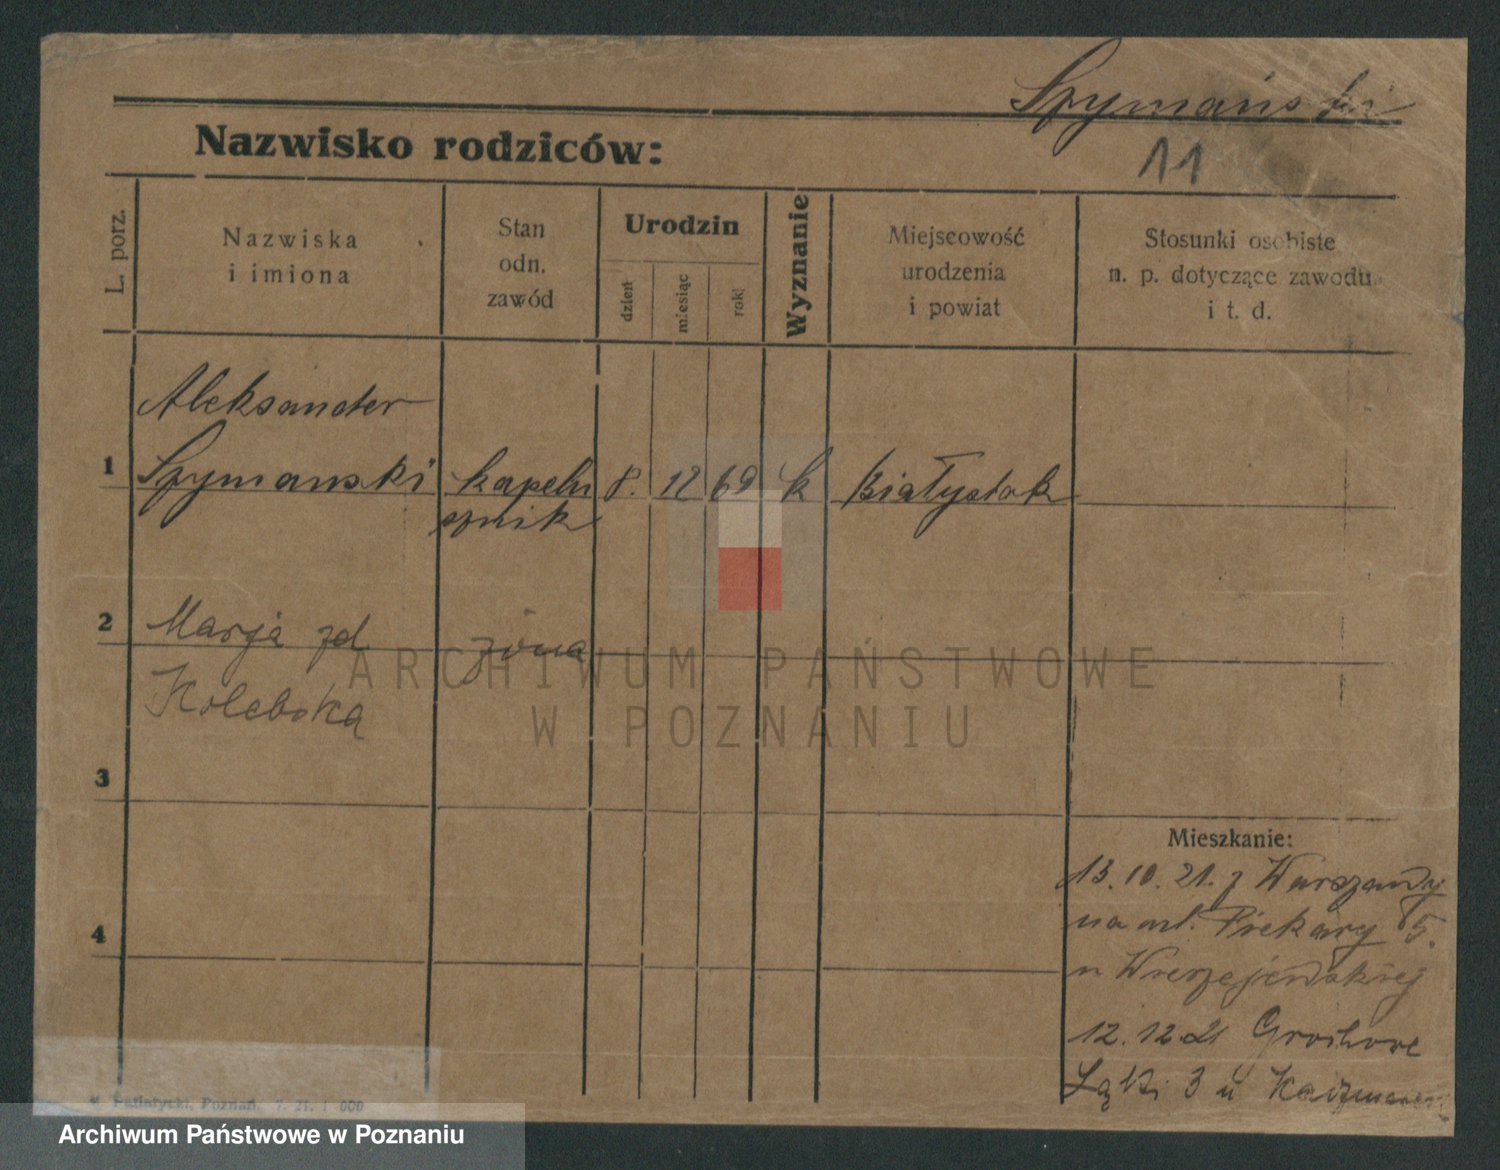 Szymański
Nazwisko rodziców:
11
L. porz.
Nazwiska
i imiona
Stan
odn.
zawód
Urodzin
dzień
miesiąc
rok
Wyznanie
Miejscowość
urodzenia
i powiat
Stosunki osobiste
n. p. dotyczące zawodu
i t. d.
Aleksander
1 Szymanski kapelu 8. 12 69 k Białystok
sznik
2 Marja zd żona
3
4
Mieszkanie:
13. 10. 21. z Warszawy
na mł. Piekary 5.
u
12. 12 21
Łąki 3 u
Poznań. 7. 21. 1 000
ARCHIWUM PAŃSTWOWE
W POZNANIU
Archiwum Państwowe w Poznaniu